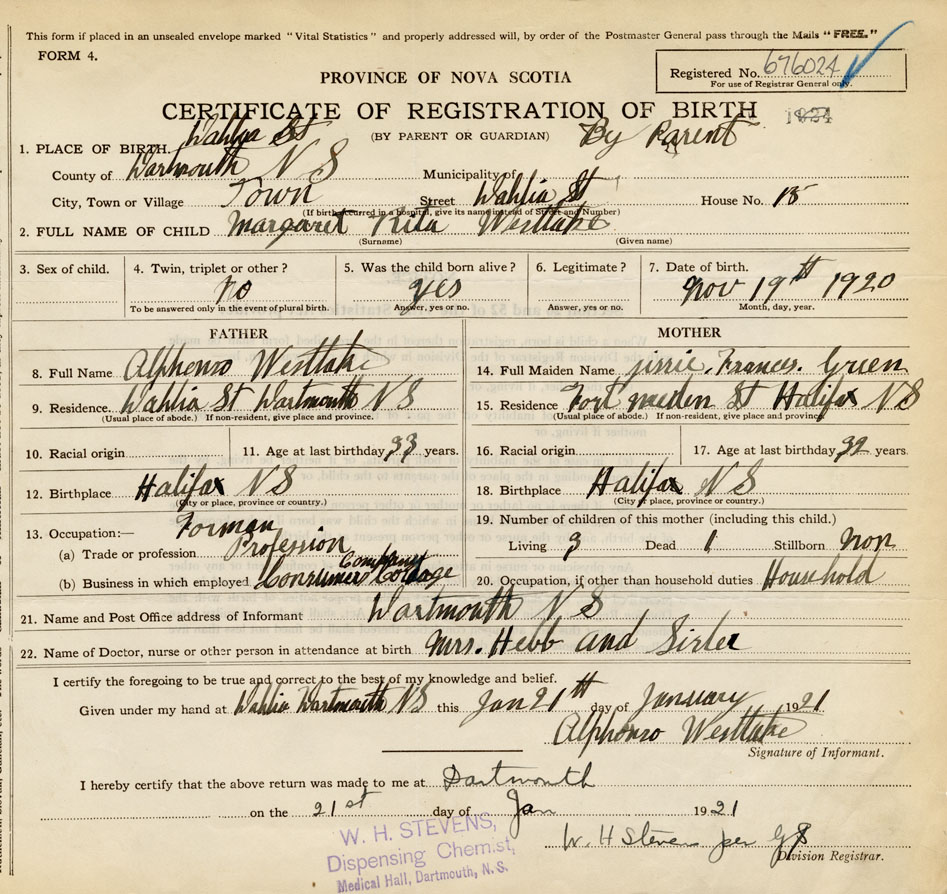 This form if placed in an unsealed envelope marked "Vital Statistics" and properly addressed will, by order of the Postmaster General pass through the Mails "FREE."
FORM 4.
Registered No. 676024
For use of Registrar General only.
PROVINCE OF NOVA SCOTIA
CERTIFICATE OF REGISTRATION OF BIRTH
(BY PARENT OR GUARDIAN) By Parent
Dahlia St
1. PLACE OF BIRTH.
County of Dartmouth N S Municipality of
City, Town or Village Town Street Dahlia St House No. 15
(If birth occurred in a hospital, give its name instead of Street and Number)
2. FULL NAME OF CHILD Margaret Rita Westlake
(Surname) (Given name)
3. Sex of child. 4. Twin, triplet or other? 5. Was the child born alive? 6. Legitimate? 7. Date of birth.
no yes Nov 19th 1920
To be answered only in the event of plural birth. Answer, yes or no. Answer, yes or no. Month, day, year.
FATHER MOTHER
8. Full Name Alphonso Westlake 14. Full Maiden Name Frances. Green
9. Residence. Dahlia St Dartmouth N S 15. Residence St Halifax N S
(Usual place of abode.) If non-resident, give place and province. (Usual place of abode.) If non-resident, give place and province.
10. Racial origin 11. Age at last birthday 33 years. 16. Racial origin 17. Age at last birthday 32 years.
12. Birthplace Halifax N S 18. Birthplace Halifax N S
(City or place, province or country.) (City or place, province or country.)
13. Occupation:— Forman 19. Number of children of this mother (including this child.)
(a) Trade or profession Profession Living 3 Dead 1 Stillborn non
(b) Business in which employed Consumers Cordage Company 20. Occupation, if other than household duties Household
21. Name and Post Office address of Informant Dartmouth N S
22. Name of Doctor, nurse or other person in attendance at birth Mrs. Hebb and Sister
I certify the foregoing to be true and correct to the best of my knowledge and belief.
Given under my hand at Dahlia Dartmouth N S this Jan 21th day of January 1921
Alphonso Westlake
Signature of Informant.
I hereby certify that the above return was made to me at Dartmouth
on the 21st day of Jan 1921
W. H. STEVENS,
Dispensing Chemist,
Medical Hall, Dartmouth, N. S.
W. H Stevens per
Division Registrar.